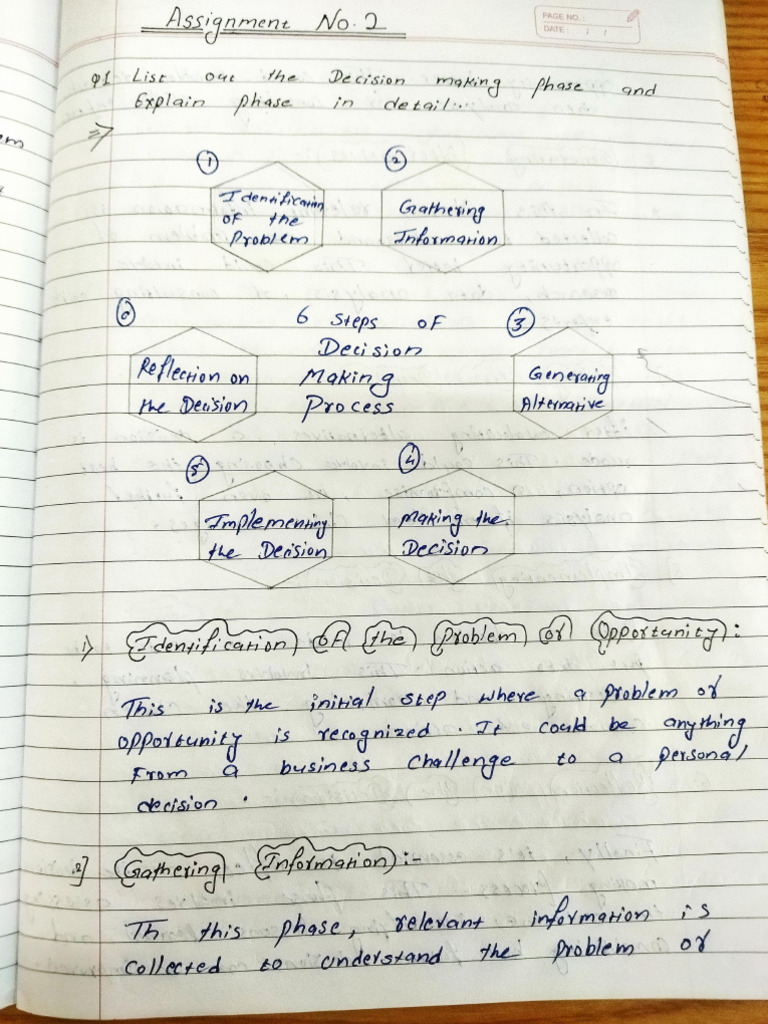 Assignment No. 2
PAGE NO.:
DATE: / /
Q1 List out the Decision making phase and
Explain phase in detail..
=>
1
Identification
of the
Problem
2
Gathering
Information
6
Reflection on
the Decision
6 Steps of
Decision
Making
Process
3
Generating
Alternative
5
Implementing
the Decision
4
Making the
Decision
1) Identification of the Problem or Opportunity:
This is the initial step where a problem or
opportunity is recognized. It could be anything
from a business challenge to a personal
decision.
2] Gathering Information:-
Th this phase, relevant information is
collected to understand the problem or